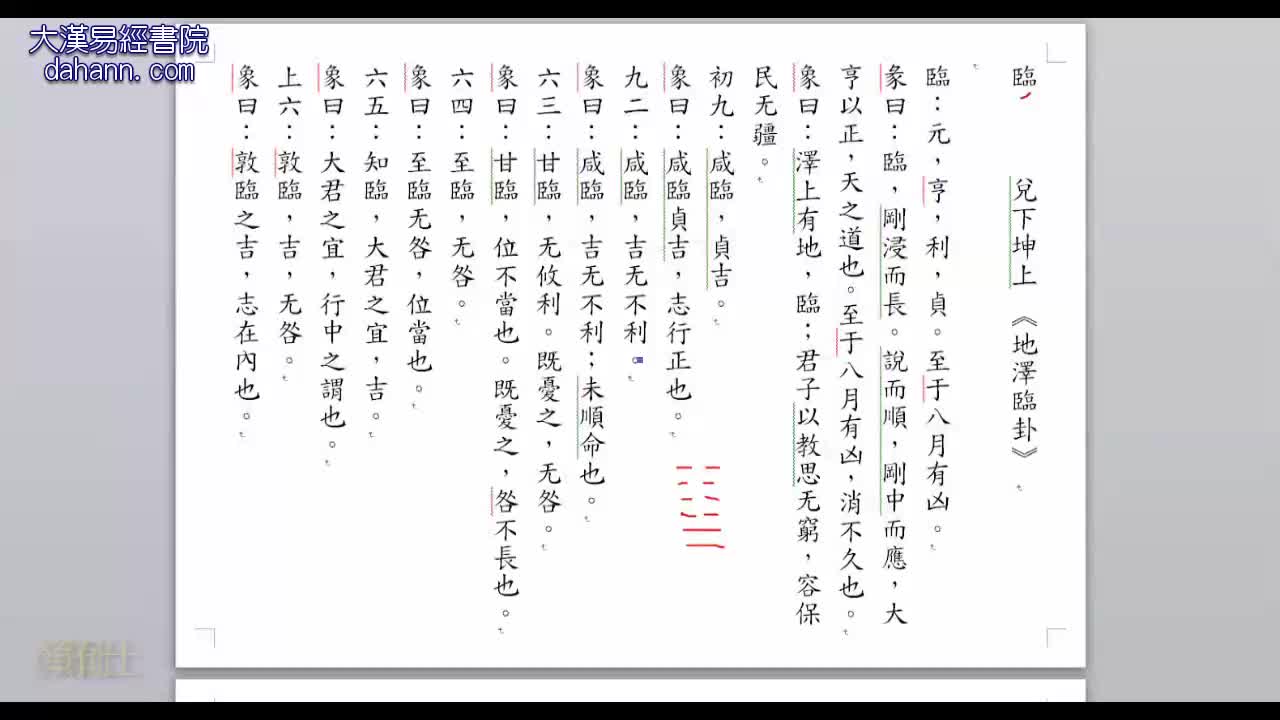 大漢易經書院
dahann. com
臨 兌下坤上 《地澤臨卦》
臨：元，亨，利，貞。至于八月有凶。
彖曰：臨，剛浸而長。說而順，剛中而應，大
亨以正，天之道也。至于八月有凶，消不久也。
象曰：澤上有地，臨；君子以教思无窮，容保
民无疆。
初九：咸臨，貞吉。
象曰：咸臨貞吉，志行正也。
九二：咸臨，吉无不利。
象曰：咸臨，吉无不利；未順命也。
六三：甘臨，无攸利。既憂之，无咎。
象曰：甘臨，位不當也。既憂之，咎不長也。
六四：至臨，无咎。
象曰：至臨无咎，位當也。
六五：知臨，大君之宜，吉。
象曰：大君之宜，行中之謂也。
上六：敦臨，吉，无咎。
象曰：敦臨之吉，志在內也。